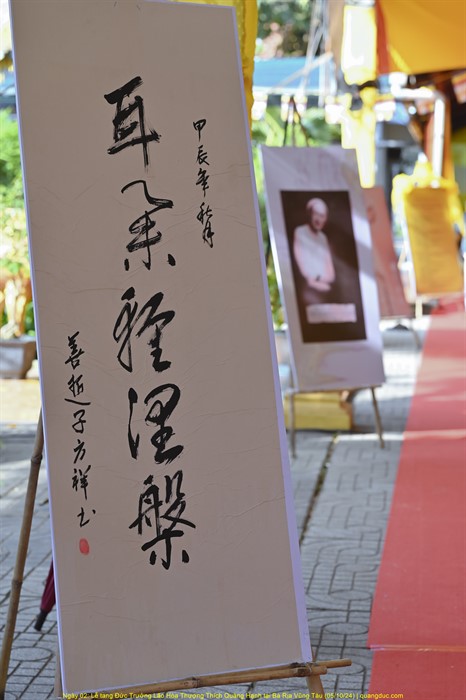 甲辰年秋月
耳 涅槃
善逝子方祥书
Ngày 02. Lễ tang Đức Trưởng Lão Hòa Thượng Thích Quảng Hạnh tại Bà Rịa Vũng Tàu (05/10/24) | quangduc.com